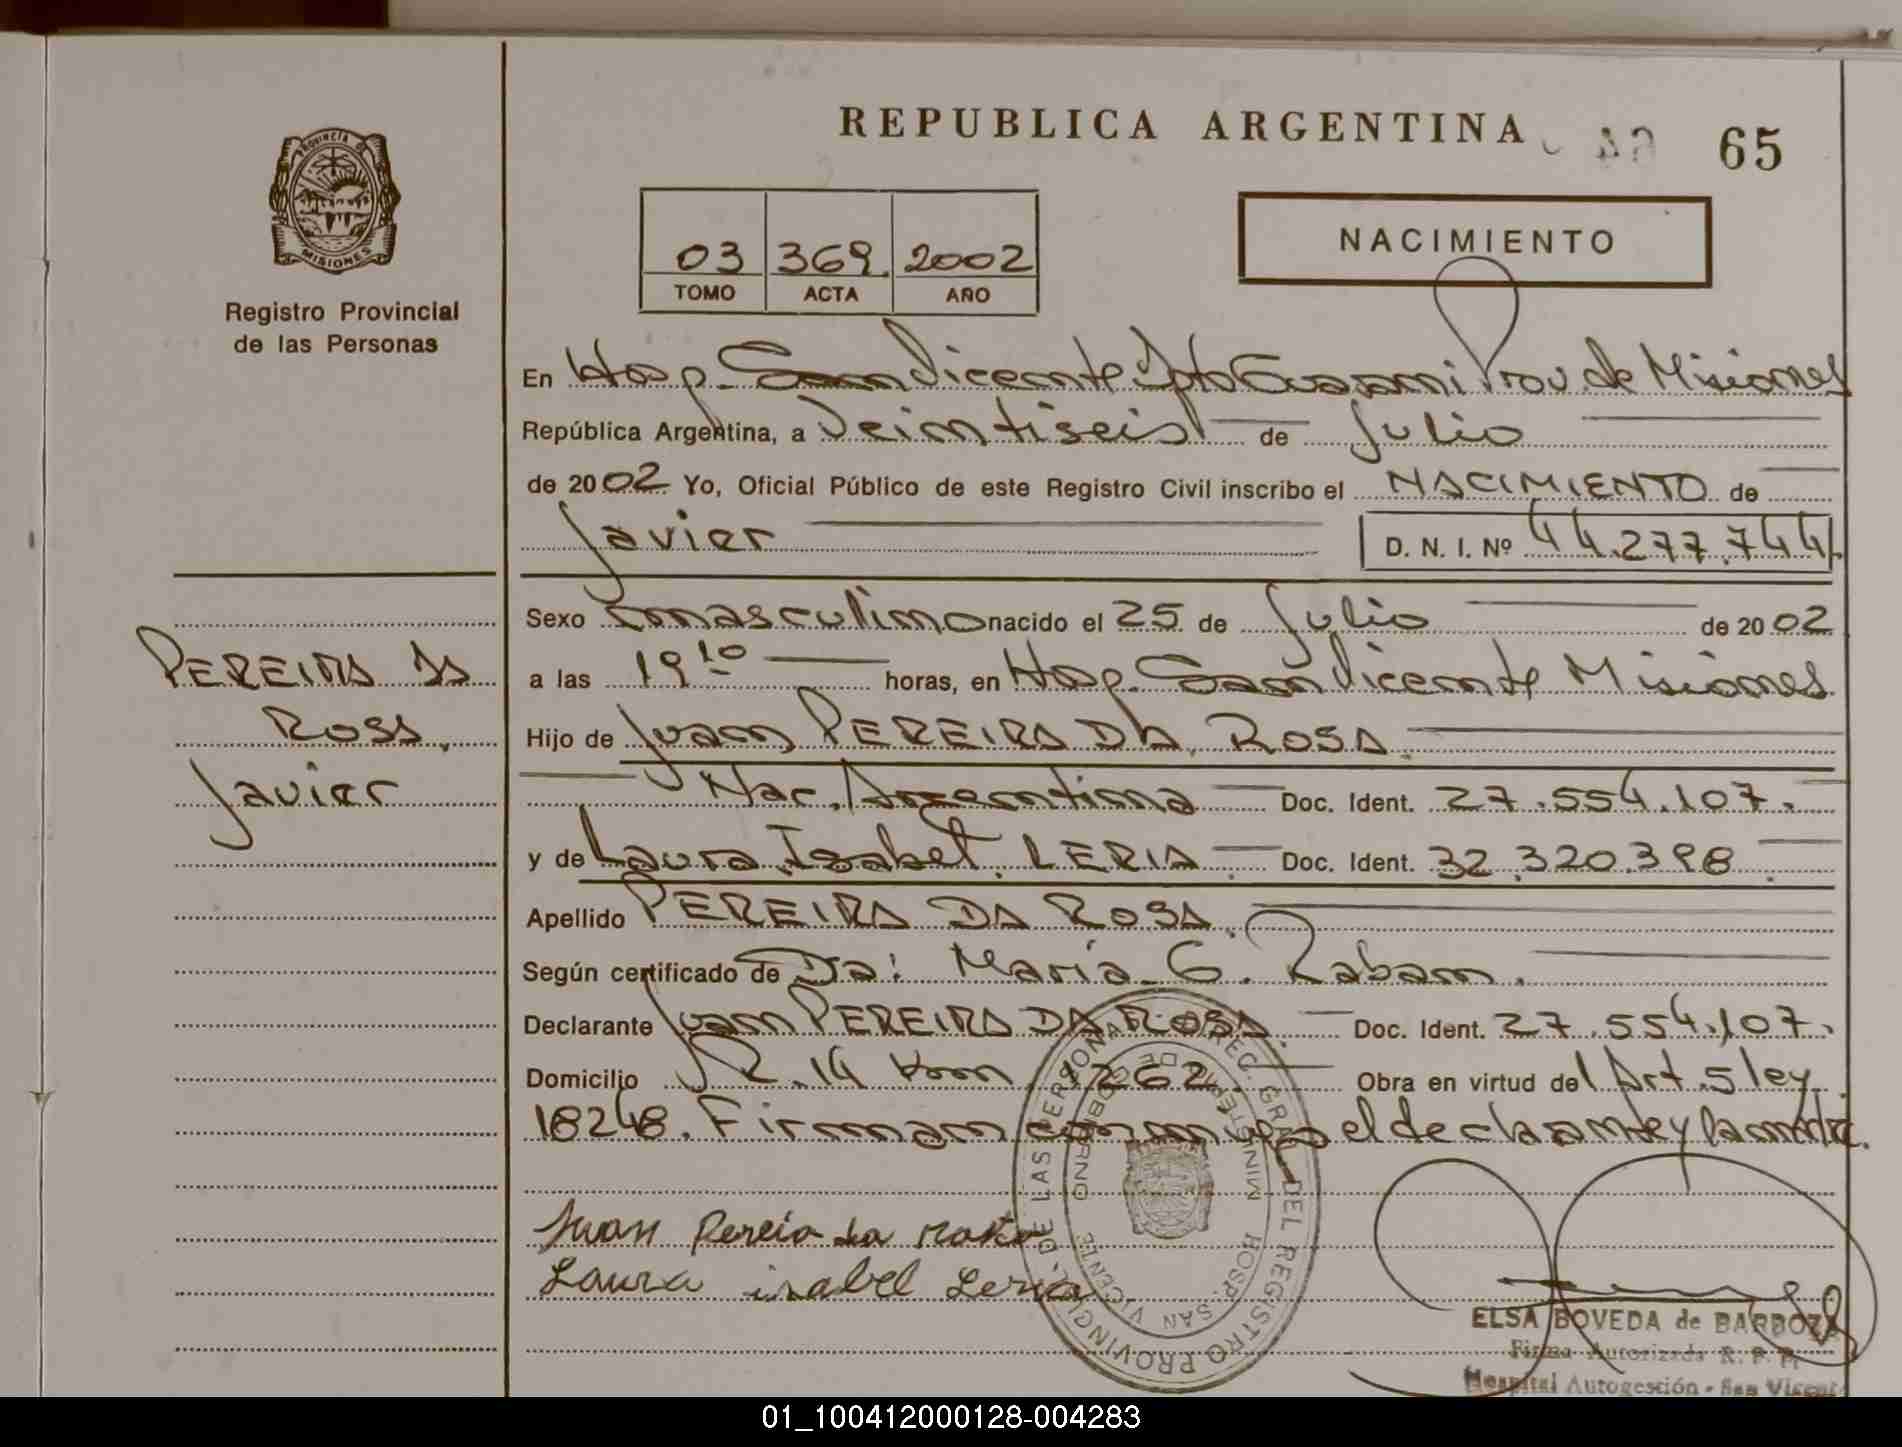 REPUBLICA ARGENTINA
65
PROVINCIA DE
MISIONES
Registro Provincial
de las Personas
03 369 2002
TOMO ACTA AÑO
NACIMIENTO
En Hosp. San Vicente Dpto Guaraní Prov. de Misiones
República Argentina, a Veintiseis de Julio
de 2002 Yo, Oficial Público de este Registro Civil inscribo el NACIMIENTO de
Javier D. N. I. Nº 44.277.744.
Sexo masculino nacido el 25 de Julio de 2002
a las 19 10 horas, en Hosp. San Vicente Misiones
Hijo de Juan PEREIRA DA ROSA.
Nac. Argentina Doc. Ident. 27.554.107.
y de Laura Isabel LERIA Doc. Ident. 32.320.398
Apellido PEREIRA DA ROSA.
Según certificado de Dra: María G. Raban.
Declarante Juan PEREIRA DA ROSA Doc. Ident. 27.554.107.
Domicilio R. 14 Km 1262. Obra en virtud del Art. 5 ley
18248. Firman conmigo el declarante y la madre.
PEREIRA DA
ROSA,
Javier
Juan Pereia da rosa
Laura isabel Leria
REC. GRAL. DEL REGISTRO PROVINCIAL DE LAS PERSONAS
MINISTERIO DE GOBIERNO
HOSP. SAN VICENTE
ELSA BOVEDA de BARBOZA
Firma Autorizada R. P. P.
Hospital Autogestión - San Vicente
01_100412000128-004283